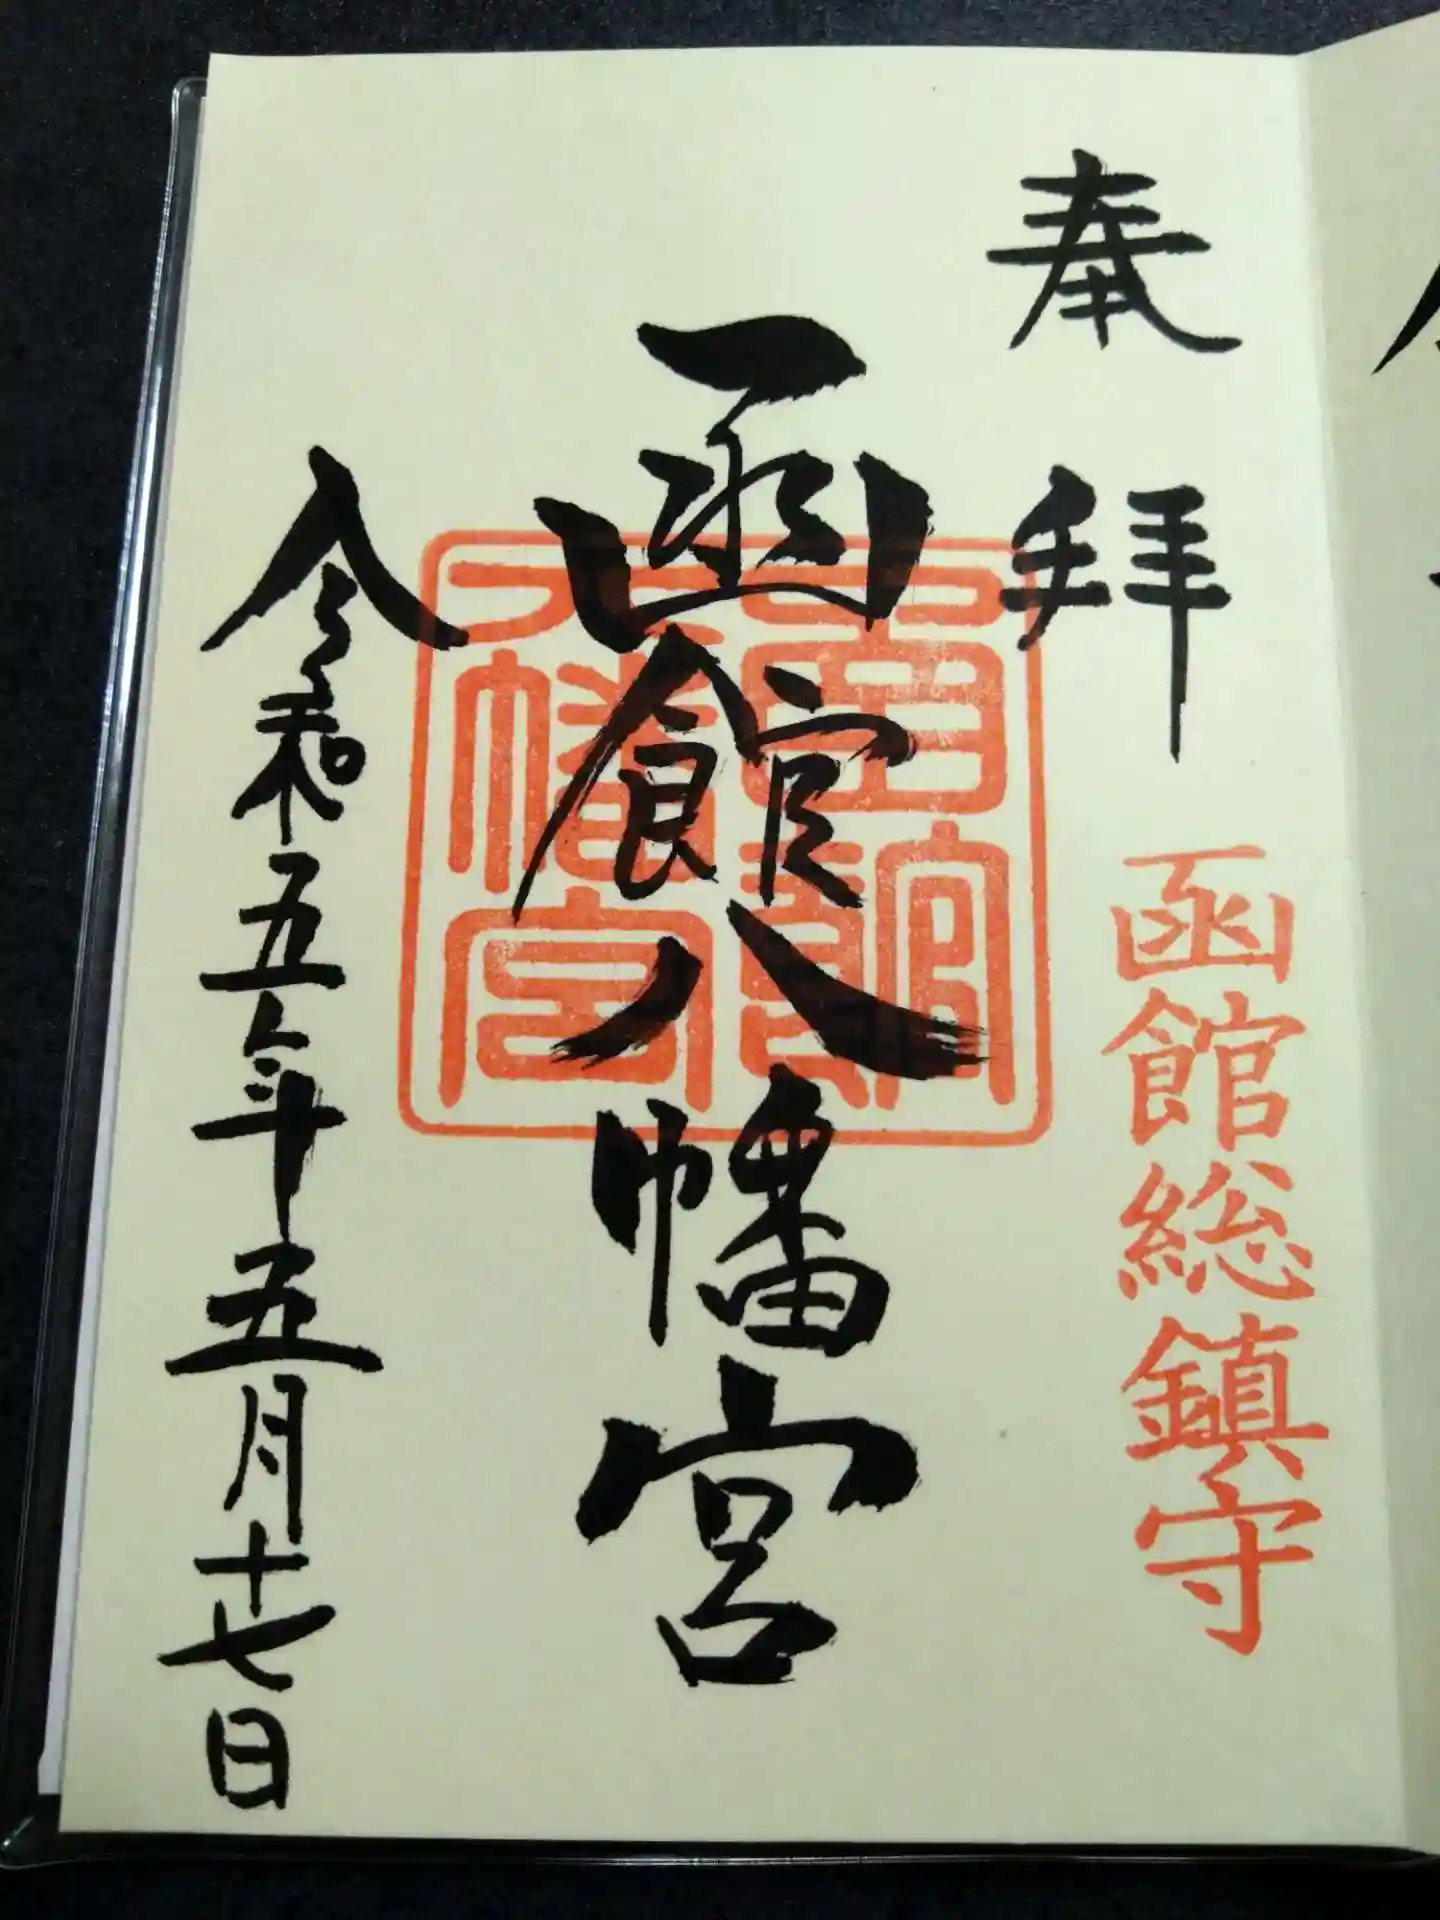 奉拝
函館総鎮守
函館八幡宮
令和五年五月十七日
函館
八幡宮